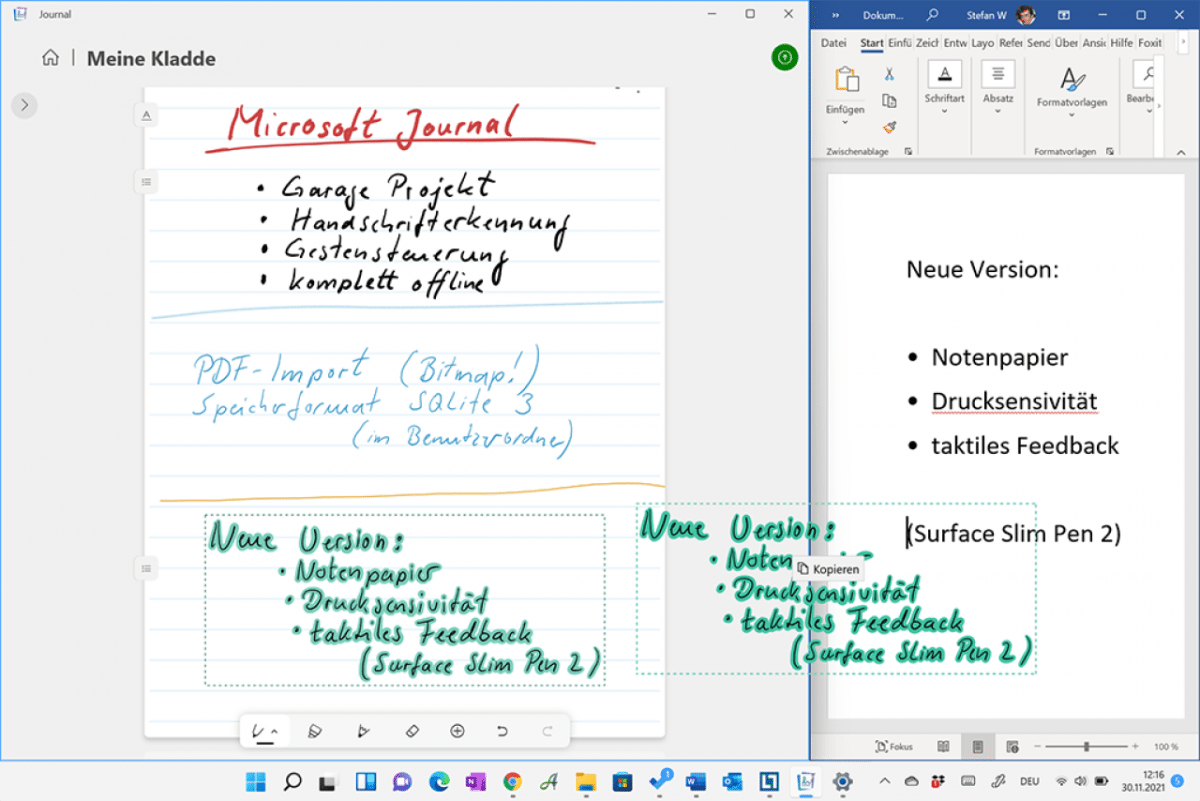 Journal
Meine Kladde
A
Microsoft Journal
• Garage Projekt
• Handschrifterkennung
• Gestensteuerung
• komplett offline
PDF-Import (Bitmap!)
Speicherformat SQLite 3
(im Benutzerordner)
Neue Version:
• Notenpapier
• Drucksensivität
• taktiles Feedback
(Surface Slim Pen 2)
Neue Version:
• Noten
Kopieren
• Drucksensivität
• taktiles Feedback
(Surface Slim Pen 2)
Dokum...
Stefan W
Datei Start Einfü Zeich Entw Layo Refer Send Über Ansic Hilfe Foxit
Einfügen
Schriftart
Absatz
Formatvorlagen
Bearbe
Zwischenablage
Formatvorlagen
Neue Version:
• Notenpapier
• Drucksensivität
• taktiles Feedback
(Surface Slim Pen 2)
Fokus
100 %
DEU
12:16
30.11.2021
5